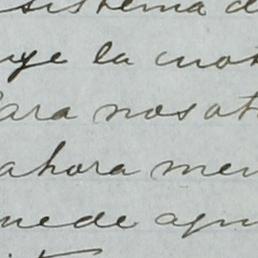 sistema d
uye la cuot
Para nosot
ahora men
uede apr